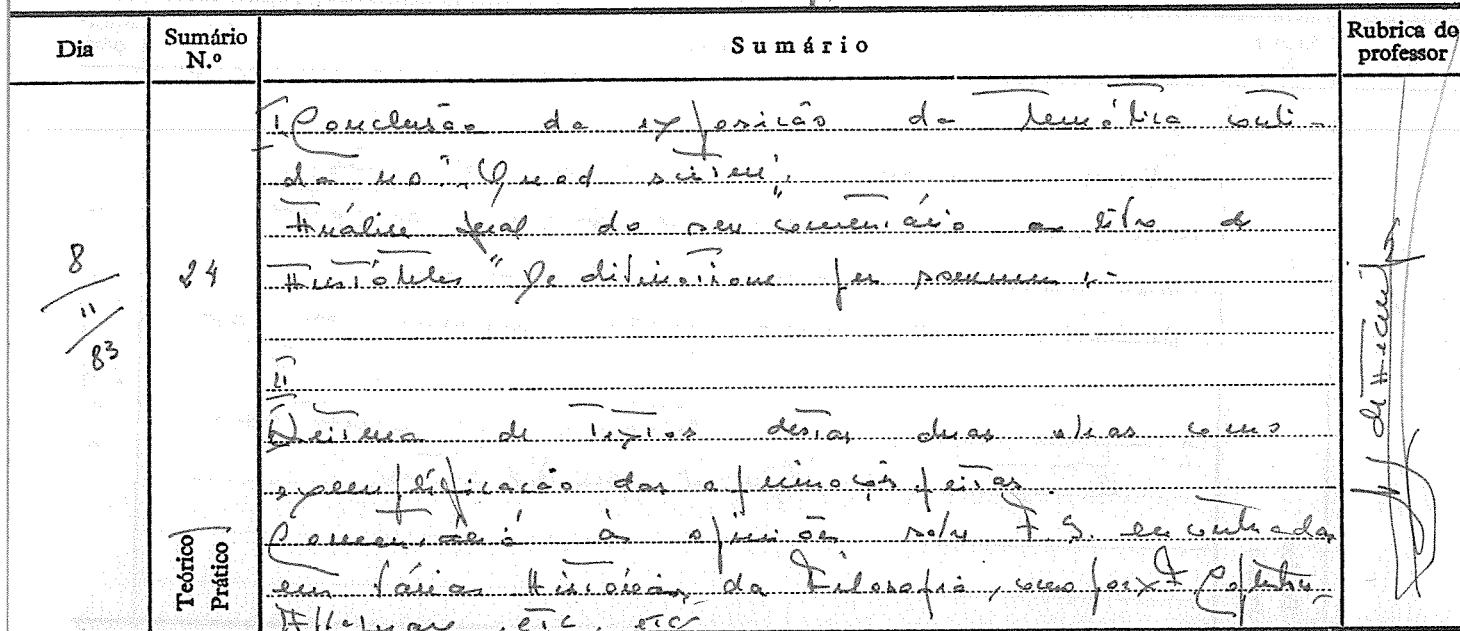 Dia
Sumário N.º
Sumário
Rubrica do professor
8/11/83
24
Teórico
Prático
I Conclusão da exposição da temática conti-
da no "Quod scitur".
Análise geral do seu comentário ao livro de
Aristóteles "De divinatione per somnum".-
II
Leitura de textos destas duas obras como
exemplificação das afirmações feitas.
Comentário às opiniões sobre F. S. encontradas
em várias Histórias da Filosofia, como p. ex. F. Copleston
etc. etc